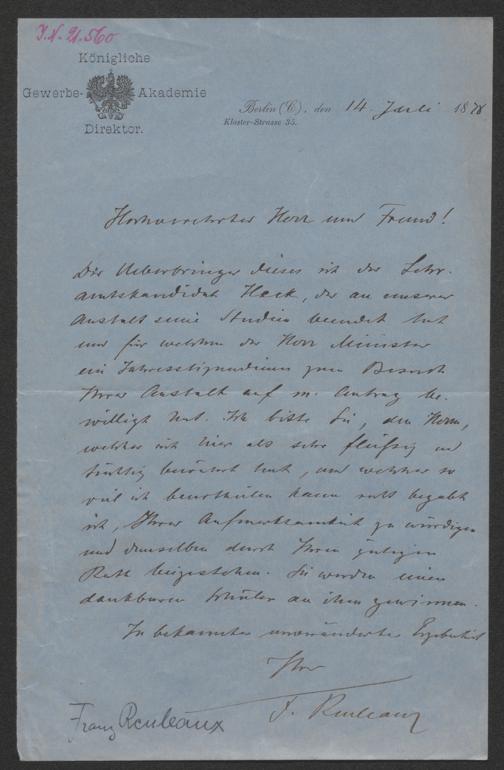 J. N. 21.560
Königliche
Gewerbe- Akademie
Direktor.
Berlin (C), den 14. Juli 1878
Kloster-Strasse 35.
Hochverehrter Herr und Freund!
Der Ueberbringer dieses ist der Lehr-
amtskandidat Heck, der an unserer
Anstalt seine Studien beendet hat
und für welchen der Herr Minister
ein Jahresstipendium zum Besuch
Ihrer Anstalt auf m. Antrag be-
willigt hat. Ich bitte Sie, den Herrn,
welcher sich hier als sehr fleißig und
tüchtig bewährt hat, und welcher so
viel ich beurtheilen kann recht begabt
ist, Ihrer Aufmerksamkeit zu würdigen
und demselben durch Ihren gütigen
Rath beizustehen. Sie werden einen
dankbaren Schüler an ihm gewinnen.
In bekannter unveränderter Ergebenheit
Ihr
F. Reuleaux
Franz Reuleaux